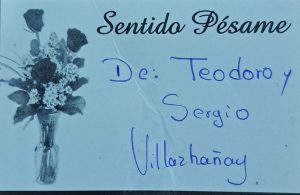 Sentido Pésame
De: Teodoro y
Sergio
Villazhañay